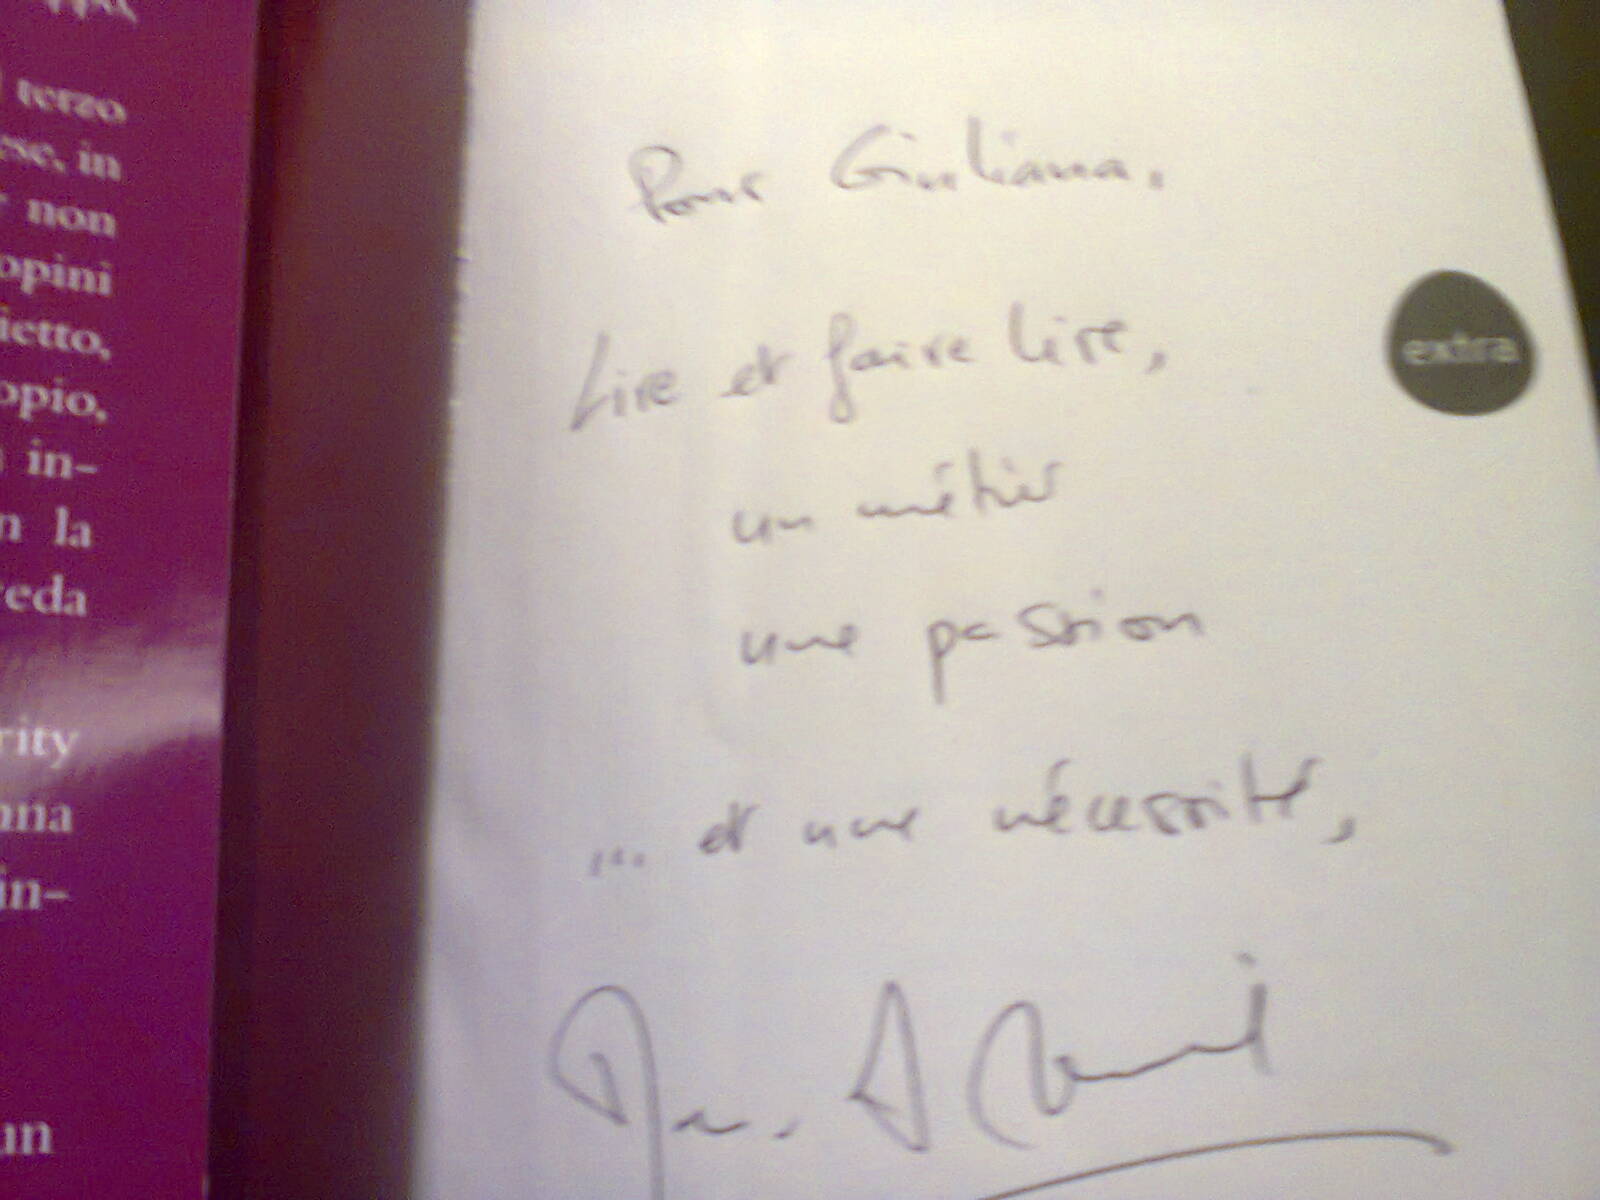 terzo
ese, in
non
opini
ietto,
opio,
in-
la
reda
rity
nna
in-
un
Pour Giuliana,
Lire et faire lire,
un métier
une passion
... et une nécessité,
extra